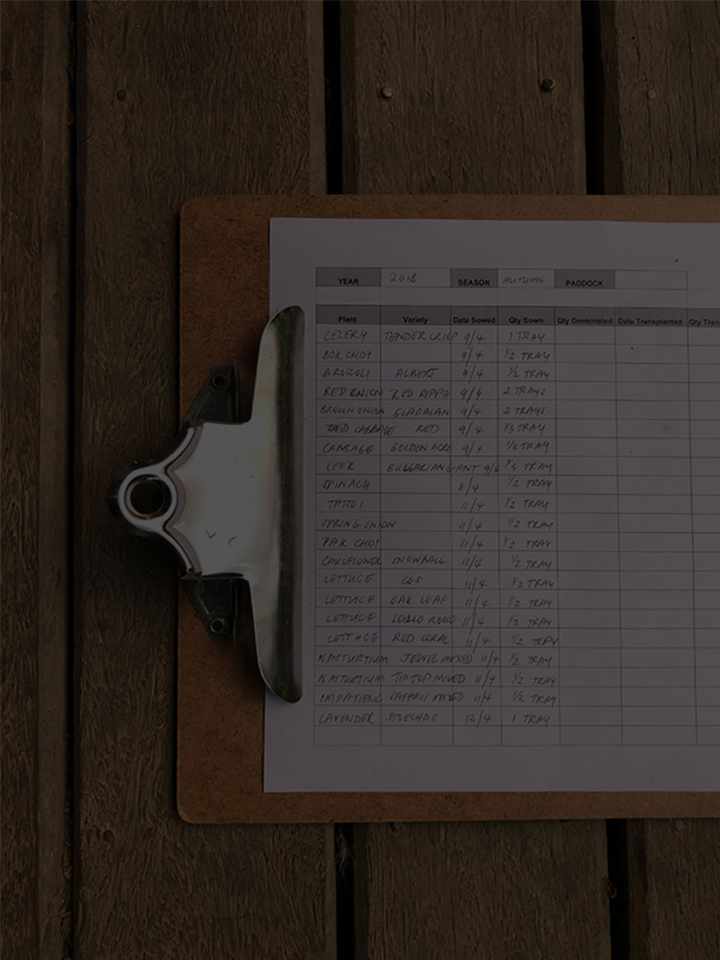 YEAR 2018 SEASON AUTUMN PADDOCK
Plant Variety Date Sowed Qty Sown Qty Germinated Date Transplanted Qty
CELERY TENDER CRISP 9/4 1 TRAY
BOK CHOY 9/4 1/2 TRAY
BROCCOLI ALBERT 9/4 1/2 TRAY
RED ONION RED 9/4 2 TRAYS
BROWN ONION GLADALAN 9/4 2 TRAYS
RED CABBAGE RED 9/4 1/3 TRAY
CABBAGE GOLDEN ACRE 9/4 1/3 TRAY
LEEK BULGARIAN GIANT 9/4 1/3 TRAY
SPINACH 1/2 TRAY
TATSOI 11/4 1/2 TRAY
SPRING ONION 11/4 1/2 TRAY
PAK CHOI 11/4 1/2 TRAY
CAULIFLOWER SNOWBALL 11/4 1/2 TRAY
LETTUCE COS 11/4 1/2 TRAY
LETTUCE OAK LEAF 11/4 1/2 TRAY
LETTUCE LOLLO ROSSO 11/4 1/2 TRAY
LETTUCE RED CORAL 11/4 1/2 TRAY
NASTURTIUM JEWEL MIXED 11/4 1/2 TRAY
NASTURTIUM TIP TOP MIXED 11/4 1/2 TRAY
IMPATIENS SAFARII MIXED 11/4 1/2 TRAY
LAVENDER STOECHAS 12/4 1 TRAY